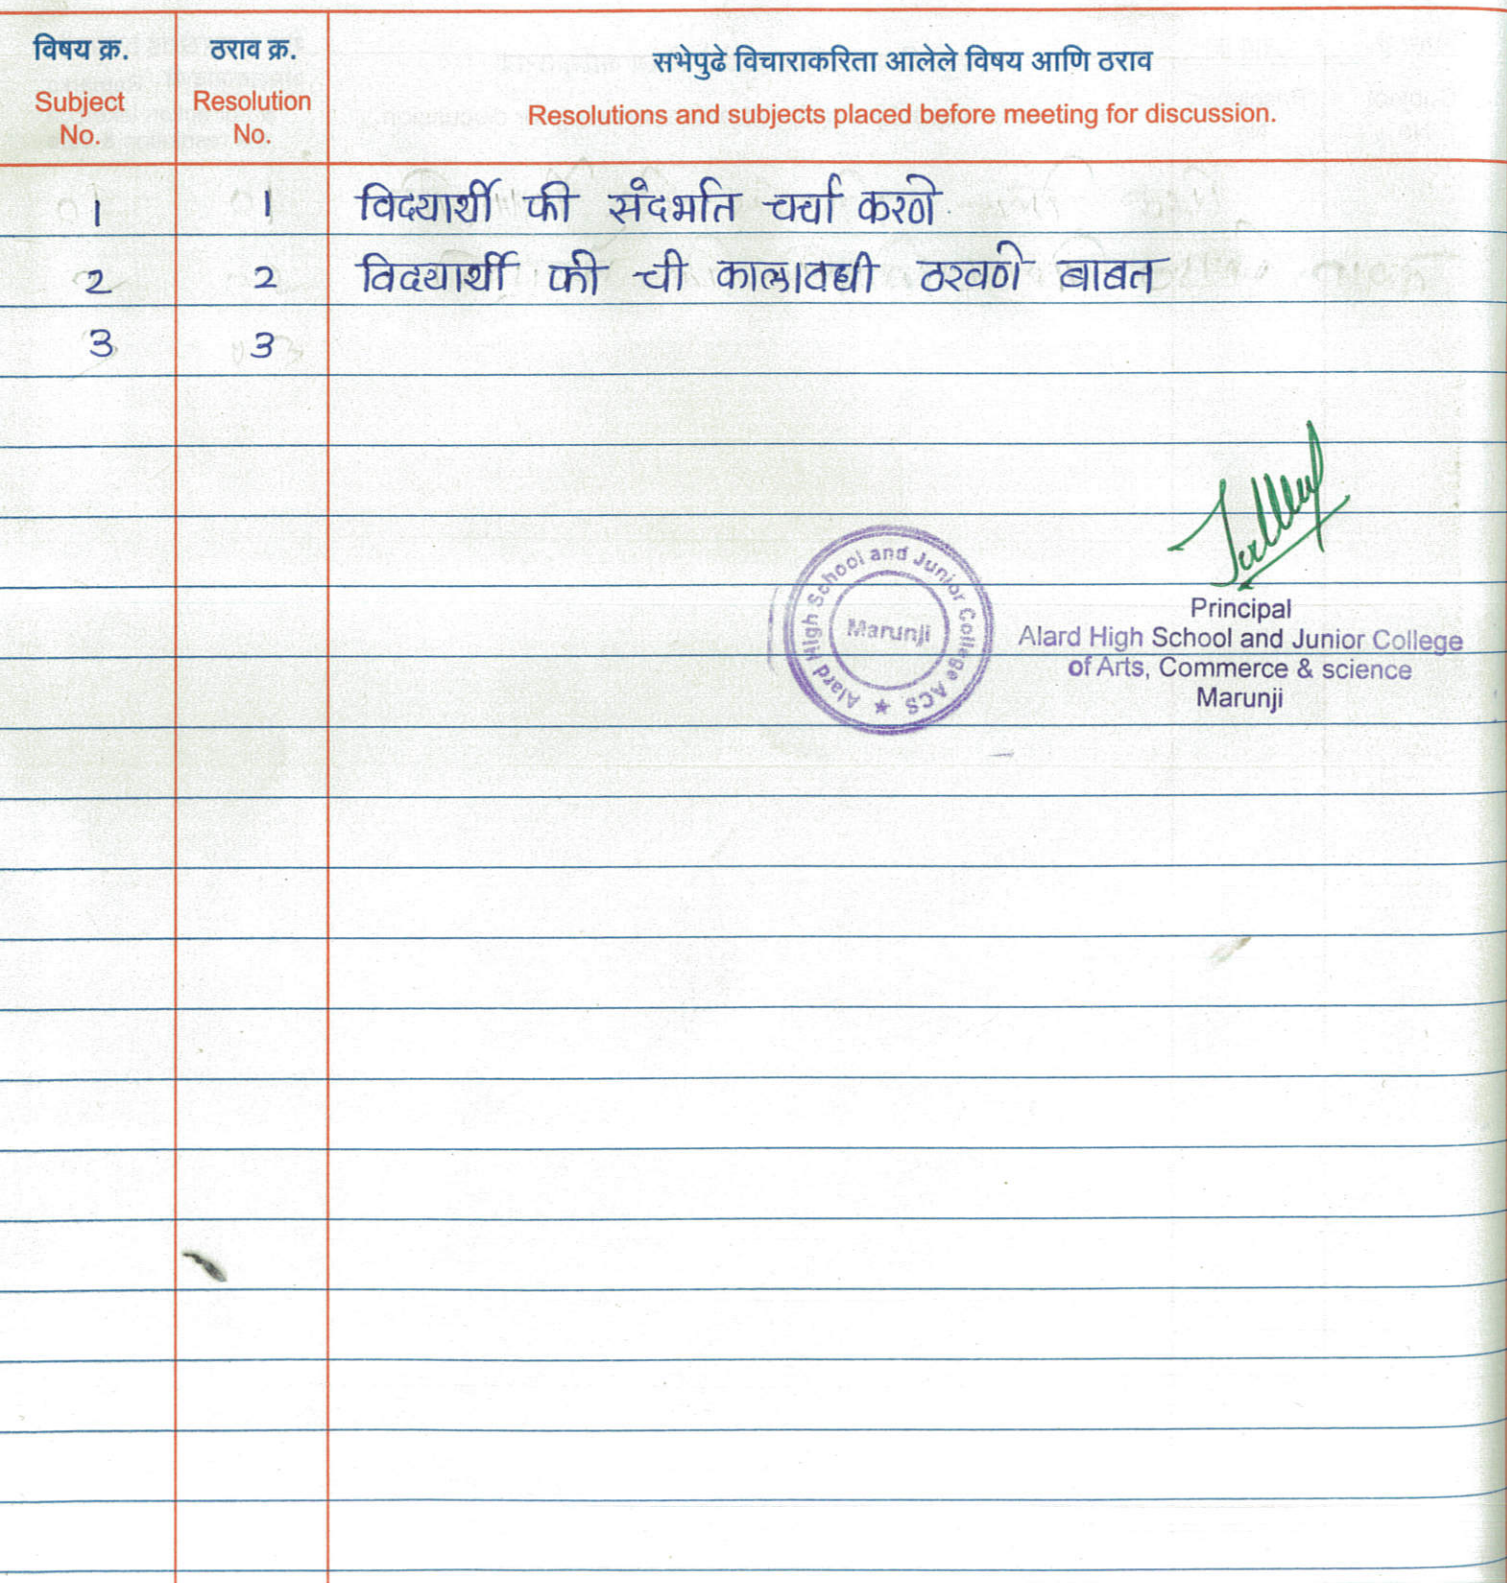 विषय क्र. ठराव क्र. सभेपुढे विचाराकरिता आलेले विषय आणि ठराव
Subject No. Resolution No. Resolutions and subjects placed before meeting for discussion.
1 1 विद्यार्थी फी संदर्भात चर्चा करणे
2 2 विद्यार्थी फी ची कालावधी ठरवणे बाबत
3 3
Alard High School and Junior College ACS.
Marunji
Principal
Alard High School and Junior College
of Arts, Commerce & science
Marunji